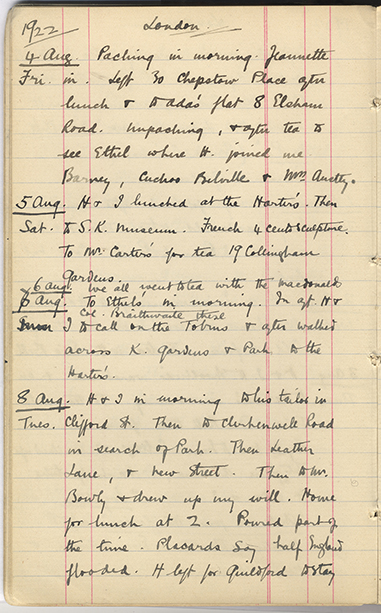 1922 London.
4 Aug Packing in morning. Jeannette
Fri. in. Left 30 Chepstow Place after
lunch & to Ada's flat 8 Elsham
Road. Unpacking, & after tea to
see Ethel where H. joined me
Barney, Cuckoo Belville & Mrs
5 Aug. H & I lunched at the Harter's. Then
Sat. to S.K. Museum. French 4 cents sculpture.
To Mr. Carter's for tea 19 Collingham
Gardens.
6 Aug we all went to tea with the Macdonalds
6 Aug. To Ethels in morning. In aft. H &
Col. Braithwaite there
I to call on the Tobins & after walked
across K. Gardens & Park to the
Harter's.
8 Aug. H & I in morning to his tailor in
Tues. Clifford St. Then to Clerkenwell Road
in search of Park. Then Leather
Lane, & New Street. Then to Mr.
Bowly & drew up my will. Home
for lunch at 2. Poured part of
the time. Placards say half England
flooded. H left for Guildford to stay